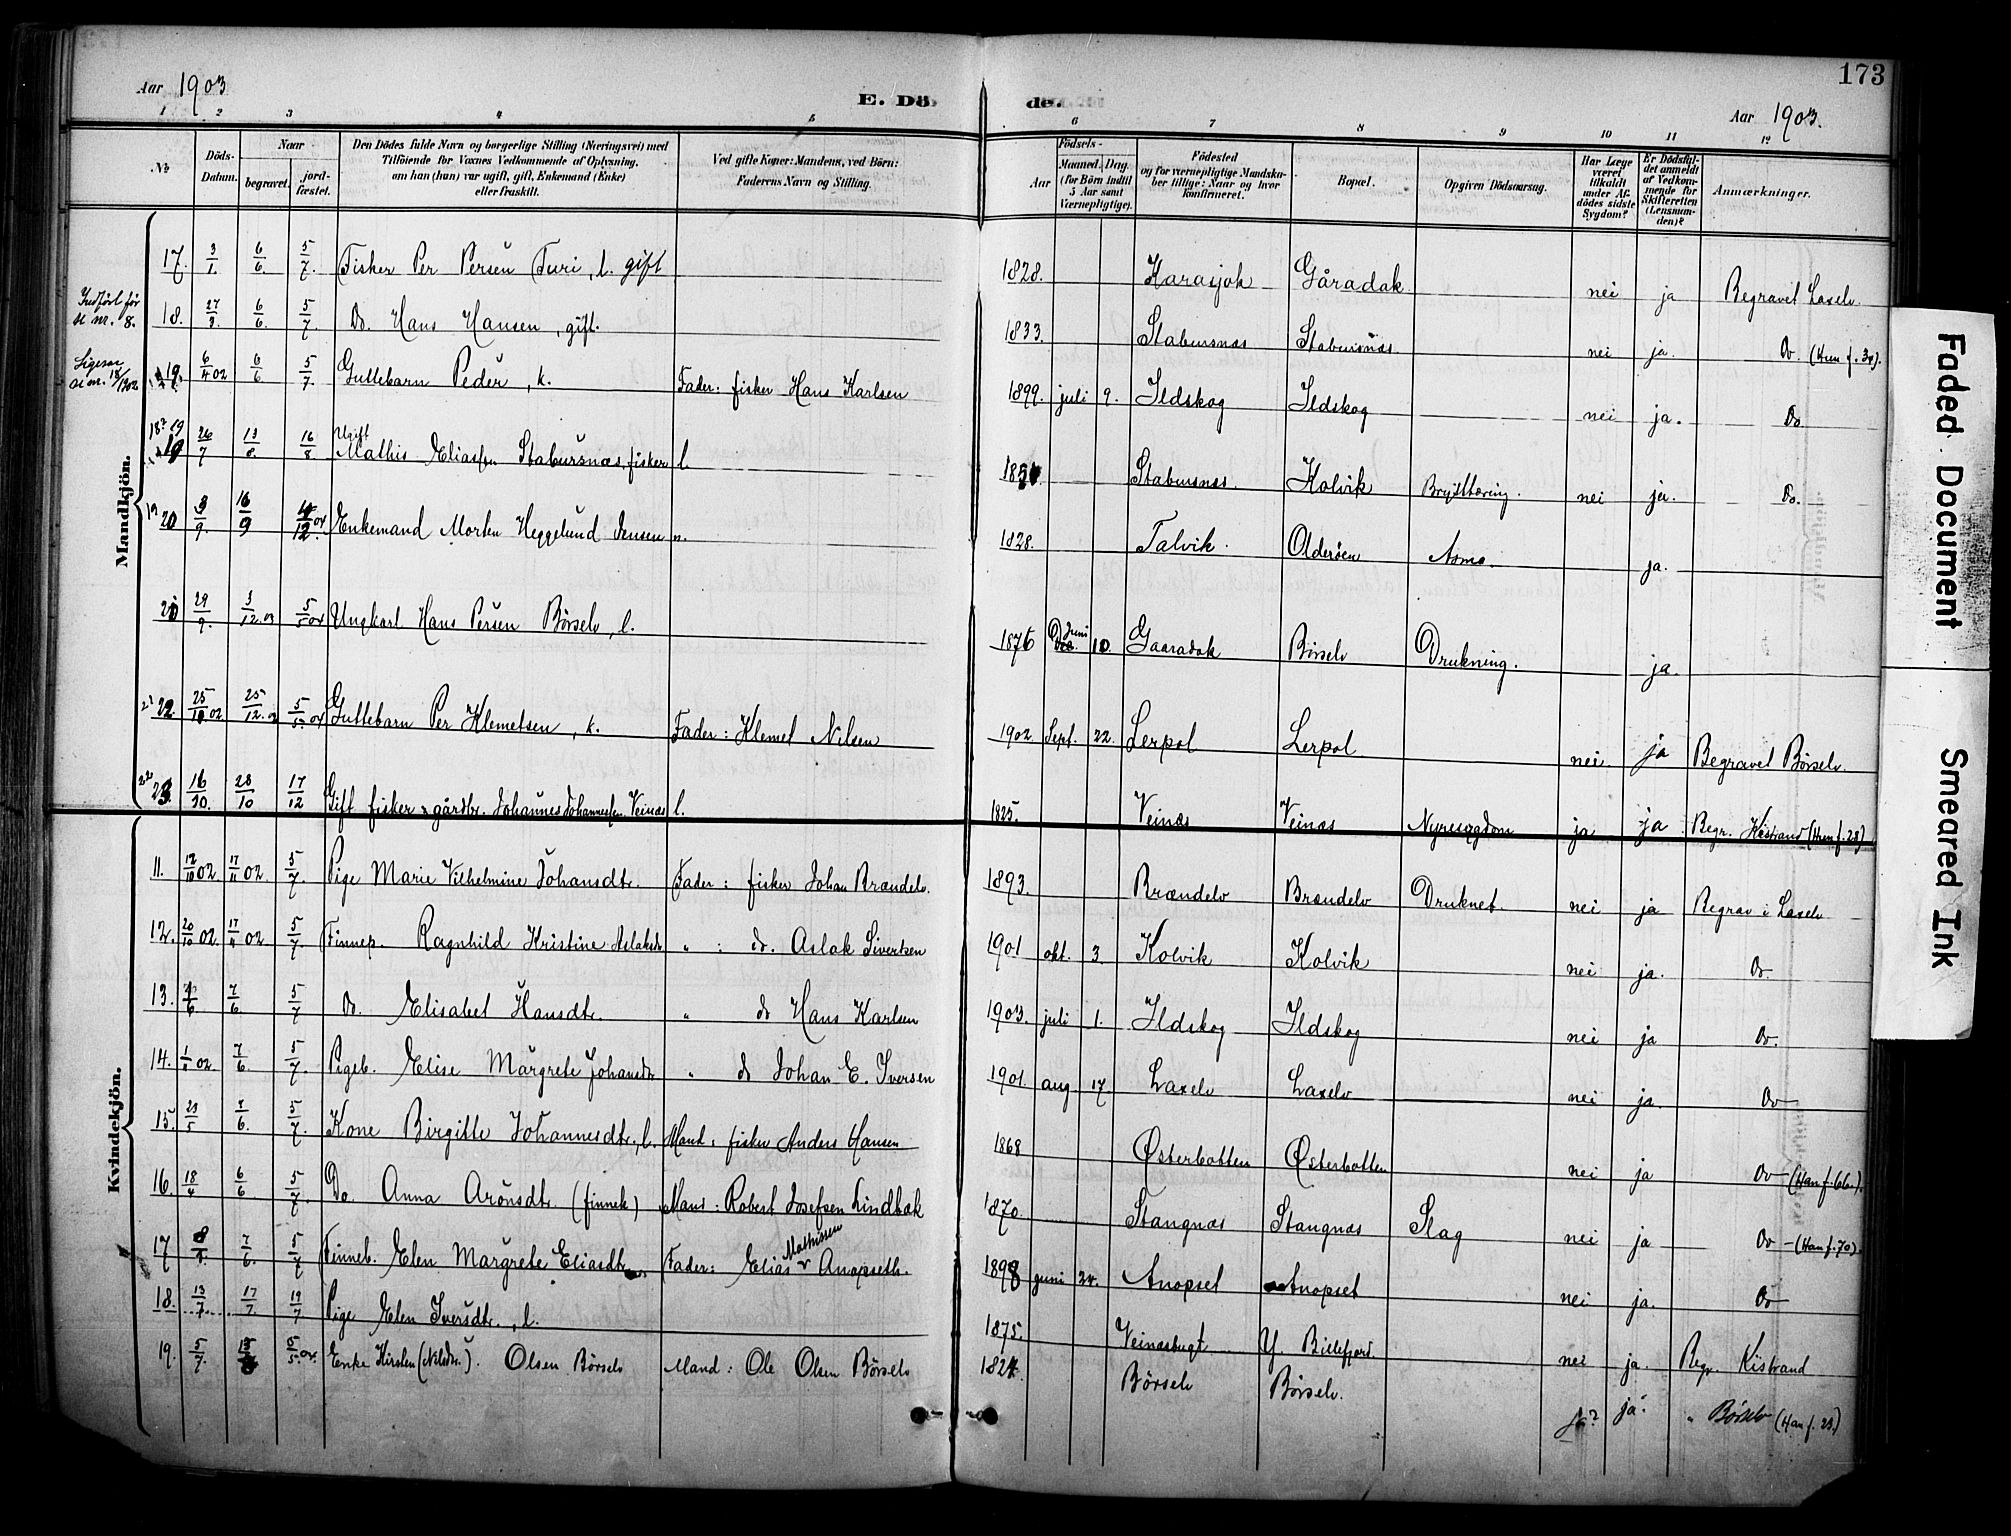 173
Aar 1903
E. Dö
de.
Aar 1903.
1 2 3 4 5 6 7 8 9 10 11 12
No
Döds-Datum.
Naar
begravet.
jord-fæstet.
Den Dödes fulde Navn og borgerlige Stilling (Næringsvei) med
Tilföiende for Voxnes Vedkommende af Oplysning,
om han (hun) var ugift, gift, Enkemand (Enke)
eller fraskilt.
Ved gifte Koner: Mandens, ved Börn:
Faderens Navn og Stilling.
Aar
Födsels-
Maaned. Dag.
(for Börn indtil
5 Aar samt
Værnepligtige).
Födested
og for værnepligtige Mandska-
ber tillige: Naar og hvor
konfirmeret.
Bopæl.
Opgiven Dödsaarsag.
Har Læge
været
tilkaldt
under Af-
dödes sidste
Sygdom?
Er Dödsfal-
det anmeldt
af Vedkom-
mende for
Skifteretten
(Lensman-
den)?
Anmærkninger.
Mandkjön.
17. 3/1 6/6 5/7. Fisker Per Persen Turi, l. gift 1828. Karasjok Gåradak nei ja Begravet Laxelv.
Indført før
se nr. 8.
18. 27/3. 6/6. 5/7. Do. Hans Hansen, gift. 1833. Stabursnes Stabursnes. nei ja. Do. (Kun f. 34).
19. 6/4 02 6/6 5/7. Guttebarn Peder, k. Fader: fisker Hans Karlsen 1899. juli 9. Ildskog Ildskog nei ja. Do
19 26/7 13/8. 16/8. Ugift Mathis Eliassen Stabursnæs, fisker l. Stabursnes. Kolvik Brysttæring. nei ja. Do.
20 3/9. 16/9 Enkemand Morten Heggelund Jensen n. 1828. Talvik. Olderøen Asma. ja.
29/9. 3/12. 03 5/5 04 Ungkarl Hans Persen Børselv, l. 1876 Juni 10. Gaaradak Børselv Drukning. ja.
22 25/10 02 25/12. 02 5/5. 04 Guttebarn Per Klemetsen, k. Fader: Klemet Nilsen 1902. Sept. 22. Lerpol Lerpol nei. ja Begravet Børselv.
23. 16/10. 28/10 17/12 Gift fisker & gårdbr. Johannes Johannessen Veinæs l. 1825. Veinæs Veinæs Nyresygdom ja ja Begr. Kistrand (Kun f. 28)
Kvindekjön.
11. 12/10 02. 17/11 02. 5/7 Pige Marie Vilhelmine Johansdtr. Fader: fisker Johan Brændelv. 1893. Brændelv Brændelv Druknet. nei ja Begrav i Laxelv
12. 20/10 02. 17/11 02 5/7 Finnep. Ragnhild Kristine Aslaksdr " : do. Aslak Sivertsen 1901 okt. 3. Kolvik Kolvik nei ja. Do.
13. 7/6. 5/7 Do. Elisabet Hansdtr. " do Hans Karlsen 1903. juli 1. Ildskog Ildskog nei ja Do.
14. 02 7/6 5/7. Pigeb. Elise Margrete Johansdr " do Johan E. Iversen 1901. aug. 17. Laxelv Laxelv nei ja. Do
15. 23/5 7/6. 5/7. Kone Birgitte Johannesdtr., l. Mand: fisker Anders Hansen 1868 Østerbotten Østerbotten nei ja Do (Han f. 66.)
16. 18/4 6/6 5/7. Do. Anna Aronsdtr. (finnek) Mand: Robert Josefsen Lindbak 1870. Stangnæs Stangnæs Slag nei ja Do (Han f. 70).
17 7/6. 5/7 Finneb. Elen Margrete Eliasdtr Fader: Elias Mathissen Anopseth. 1898 juni 24. Anopset Anopset nei ja. Do
18. 13/7. 17/7. 19/7 Pige Elen Iversdtr., l. 1875. Veinesbugt Y. Billefjord nei ja. Begr. Kistrand
19. 5/7. 5/5. 04. Enke Kirsten (Nilsdtr.). Olsen Børselv Mand: Ole Olsen Børselv 1824. Børselv Børselv. ja? ja. " Børselv (Han f. 23.)
Faded Document
Smeared Ink